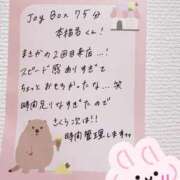 Joy Box 75分
本指名くん!
まさかの2回目来店...!
スピード感ありすぎて
ちょっとおもろかったな...笑
時間足りなすぎたので
さくら次は!!
時間管理します